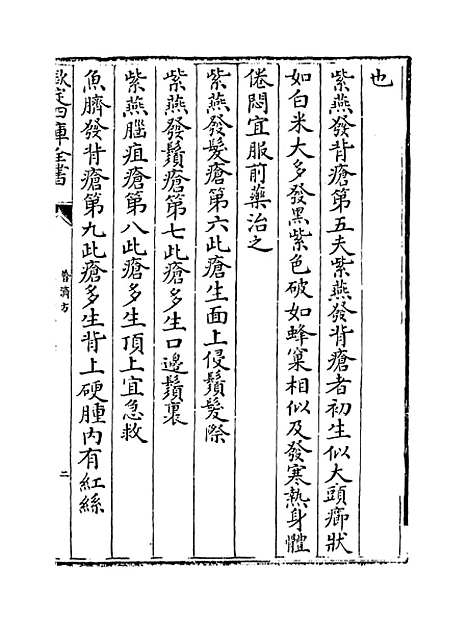 也
紫燕發背瘡第五夫紫燕發背瘡者初生似大頭癤狀
如白米大多發黑紫色破如蜂窠相似及發寒熱身體
倦悶宜服前藥治之
紫燕發髮瘡第六此瘡生面上侵鬚髮際
紫燕發鬚瘡第七此瘡多生口邊鬚裏
紫燕腦疽瘡第八此瘡多生頂上宜急救
魚臍發背瘡第九此瘡多生背上硬腫內有紅絲
欽定四庫全書
普濟方
二